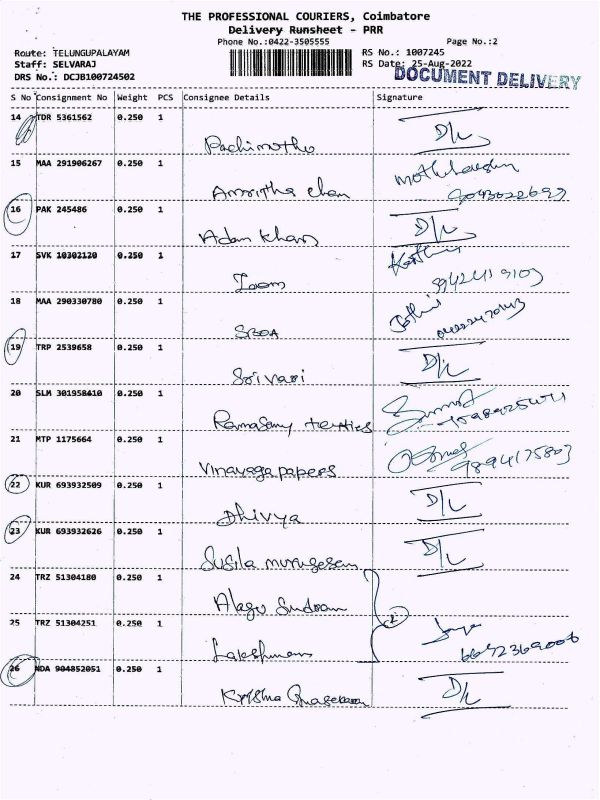 THE PROFESSIONAL COURIERS, Coimbatore
Delivery Runsheet - PRR
Phone No.:0422-3505555 Page No.:2
Route: TELUNGUPALAYAM RS No.: 1007245
Staff: SELVARAJ RS Date: 25-Aug-2022
DRS No.: DCJB100724502 DOCUMENT DELIVERY
S No Consignment No Weight PCS Consignee Details Signature
14 TDR 5361562 0.250 1
Pachimuthu D/L
15 MAA 291906267 0.250 1
Amrirtha chan
16 PAK 245486 0.250 1
Adam khan D/L
17 SVK 10302120 0.250 1
Zoom 9942419109
18 MAA 290330780 0.250 1
SBOA
19 TRP 2539658 0.250 1
Sri vari D/L
20 SLM 301958410 0.250 1
Ramasamy
21 MTP 1175664 0.250 1
Vinayaga papers 9894175803
22 KUR 693932509 0.250 1
Dhivya D/L
23 KUR 693932626 0.250 1
Susila murugesan D/L
24 TRZ 51304180 0.250 1
Alagu Sundram
25 TRZ 51304251 0.250 1 2
Lakshmanan
26 NDA 904852051 0.250 1
Krishna Gnasekaran D/L